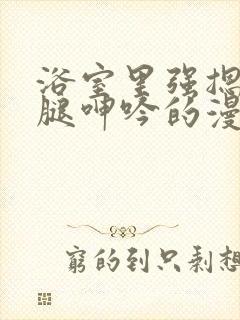 浴室里强揌
腿呻吟的漫
窮的到只剩想